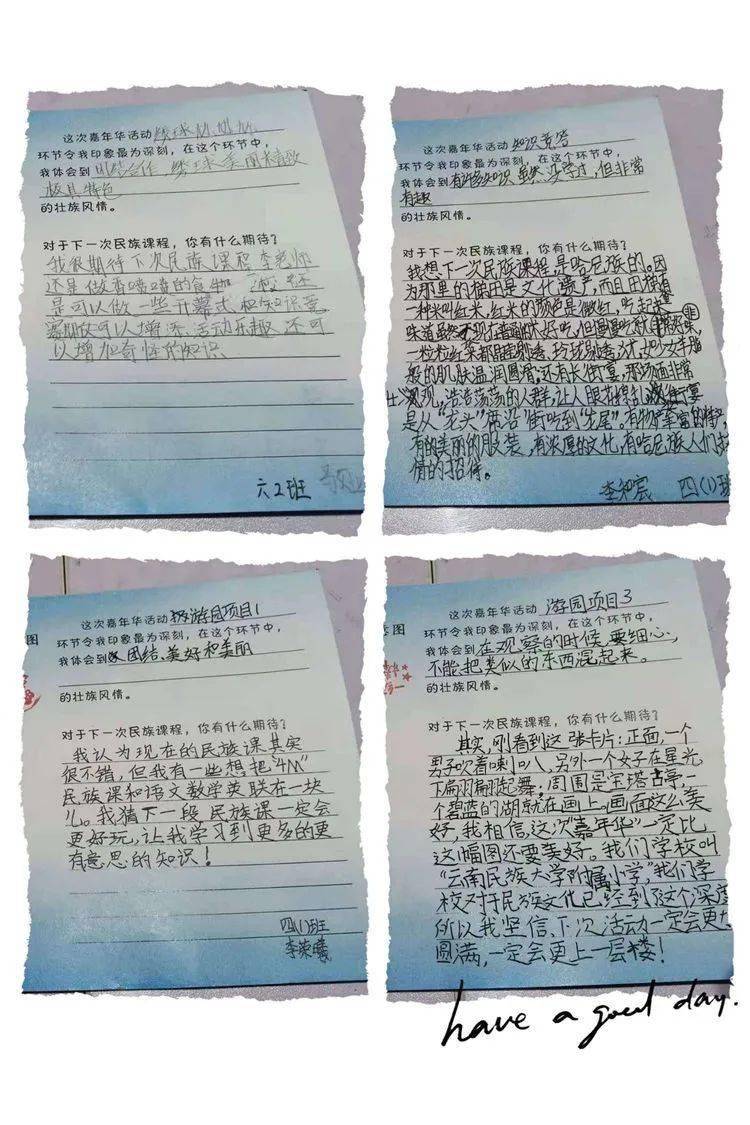 这次嘉年华活动 绣球
环节令我印象最为深刻，在这个环节中，
我体会到 团结合作 绣球
极具特色
的壮族风情。
对于下一次民族课程，你有什么期待？
我很期待下次民族课程 李老师
还是做香喷喷的食物
是可以做一些开幕式和知识竞
可以增添 活动乐趣 还可
以增加奇怪的知识
六2班
这次嘉年华活动 知识竞答
环节令我印象最为深刻，在这个环节中，
我体会到 有许多知识 虽然 没学过，但非常
有趣
的壮族风情。
对于下一次民族课程，你有什么期待？
我想下一次民族课程是哈尼族的。因
为那里的梯田是文化遗产，而且田
一种米叫红米，红米的颜色是微红，吃起来
味道虽然不现在普通的米好吃，但
一粒粒红米都晶莹剔透，玲珑剔透 如少女
般的肌肤温润圆滑。还有长街宴，那场面非常
壮观，浩浩荡荡的人群，让人眼花缭乱 宴
是从“龙头”席沿街吃到“龙尾”。有物产丰富的
有的美丽的服装，有浓厚的文化，有哈尼族人们
情的招待。
四(1)班
这次嘉年华活动 游园项目1
环节令我印象最为深刻，在这个环节中，
我体会到 团结、美好和美丽
的壮族风情。
对于下一次民族课程，你有什么期待？
我认为现在的民族课其实
很不错，但我有一些想把“4M”
民族课和语文数学英 联在一块
儿。我猜下一段民族课一定会
更好玩，让我学习到更多的更
有意思的知识！
四(1)班
李荣曦
图
这次嘉年华活动 游园项目3
环节令我印象最为深刻，在这个环节中，
我体会到 在观察的时候，要细心，
不能把类似的东西混起来。
的壮族风情。
对于下一次民族课程，你有什么期待？
其实，刚看到这张卡片：正面，一个
男子吹着喇叭，另外一个女子在星光
下翩翩起舞；周围是宝塔古亭，一
个碧蓝的湖就在画上。画面这么美
好，我相信，这次“嘉年华”一定比
这幅图还要美好。我们学校叫
“云南民族大学附属小学”我们学
校对于民族文化已经到了这个深度
所以我坚信、下次活动一定会更加
圆满，一定会更上一层楼！
have a good day.